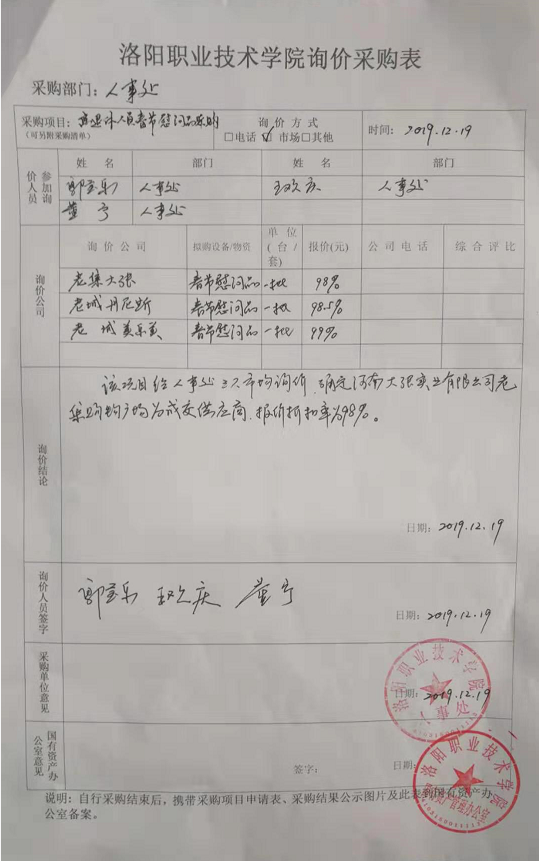 洛阳职业技术学院询价采购表
采购部门：人事处
采购项目：离退休人员春节慰问品采购
（可另附采购清单）
询价方式
□电话 ☑市场 □其他
时间：2019.12.19
参加询价人员
姓名 部门 姓名 部门
人事处 人事处
董宁 人事处
询价公司
询价公司 拟购设备/物资 单位（台/套） 报价(元) 公司电话 综合评比
老集大张 春节慰问品 一批 98%
老城丹尼斯 春节慰问品 一批 98.5%
老城美乐美 春节慰问品 一批 99%
询价结论
该项目经人事处三人市场询价，确定河南大张实业有限公司老
集购物广场为成交供应商，报价折扣率为98%。
日期：2019.12.19
询价人员签字
董宁
日期：2019.12.19
采购单位意见
日期：2019.12.19
洛阳职业技术学院
人事处
国有资产办公室意见
签字：
日期：
洛阳职业技术学院
说明：自行采购结束后，携带采购项目申请表、采购结果公示图片及此表到国有资产办
公室备案。